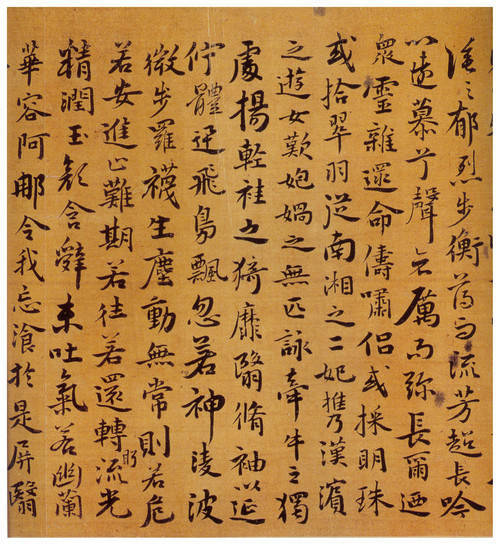 之郁烈步衡薄而流芳超長吟
以遠慕兮聲哀厲而弥長爾迺
衆靈雜遝命儔嘯侶或採明珠
或拾翠羽從南湘之二妃攜漢濱
之遊女歎媧之無匹詠牽牛之獨
處揚輕袿之猗靡翳脩袖以延
佇體迅飛鳧飄忽若神陵波
微步羅襪生塵動無常則若危
若安進止難期若往若還轉眄流光
精潤玉顏含辭未吐氣若幽蘭
華容阿那令我忘飡於是屏翳